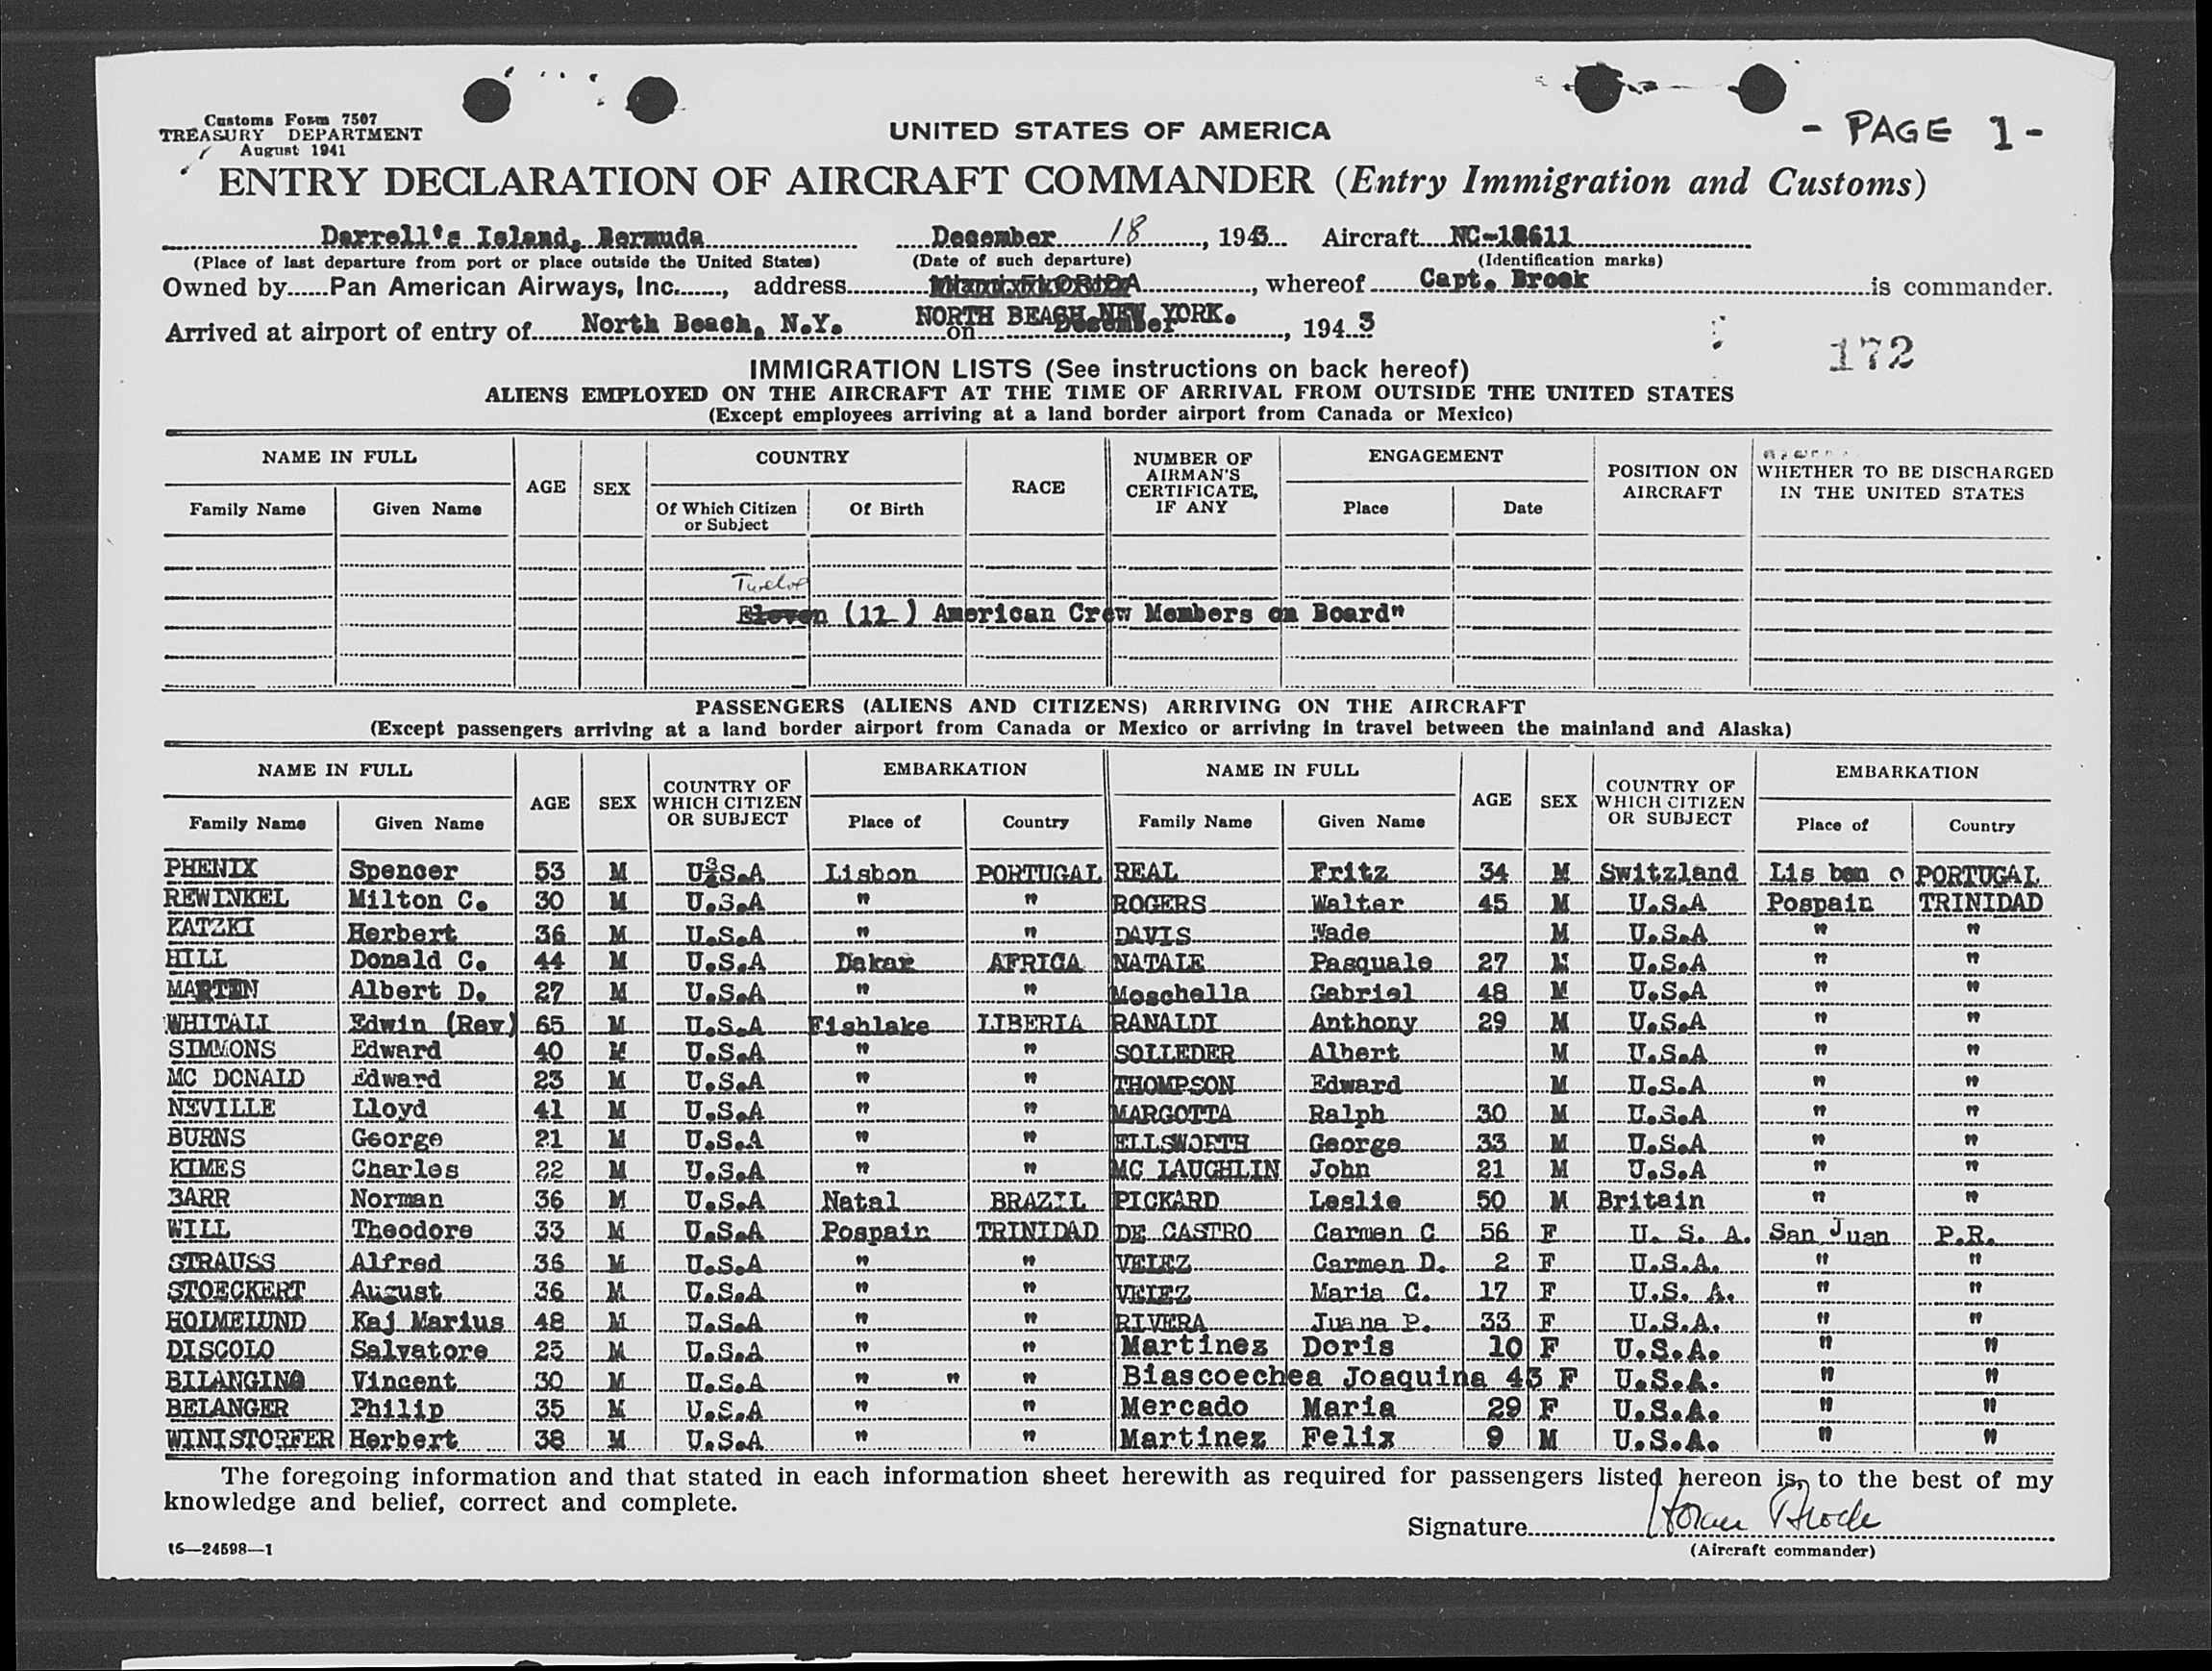 Customs Form 7507
TREASURY DEPARTMENT
August 1941
UNITED STATES OF AMERICA
- PAGE 1 -
ENTRY DECLARATION OF AIRCRAFT COMMANDER (Entry Immigration and Customs)
Darrell's Island, Bermuda December 18, 1943 Aircraft NC-18611
(Place of last departure from port or place outside the United States) (Date of such departure) (Identification marks)
Owned by Pan American Airways, Inc., address FLORIDA, whereof Capt. Brock is commander.
NORTH BEACH, NEW YORK.
Arrived at airport of entry of North Beach, N.Y. on December, 1943
172
IMMIGRATION LISTS (See instructions on back hereof)
ALIENS EMPLOYED ON THE AIRCRAFT AT THE TIME OF ARRIVAL FROM OUTSIDE THE UNITED STATES
(Except employees arriving at a land border airport from Canada or Mexico)
NAME IN FULL AGE SEX COUNTRY RACE NUMBER OF AIRMAN'S CERTIFICATE, IF ANY ENGAGEMENT POSITION ON AIRCRAFT WHETHER TO BE DISCHARGED IN THE UNITED STATES
Family Name Given Name Of Which Citizen or Subject Of Birth Place Date
Twelve
Eleven (12) American Crew Members on Board"
PASSENGERS (ALIENS AND CITIZENS) ARRIVING ON THE AIRCRAFT
(Except passengers arriving at a land border airport from Canada or Mexico or arriving in travel between the mainland and Alaska)
NAME IN FULL AGE SEX COUNTRY OF WHICH CITIZEN OR SUBJECT EMBARKATION NAME IN FULL AGE SEX COUNTRY OF WHICH CITIZEN OR SUBJECT EMBARKATION
Family Name Given Name Place of Country Family Name Given Name Place of Country
PHENIX Spencer 53 M U.S.A Lisbon PORTUGAL REAL Fritz 34 M Switzland Lis bon o PORTUGAL
REWINKEL Milton C. 30 M U.S.A " " ROGERS Walter 45 M U.S.A Pospain TRINIDAD
KATZKI Herbert 36 M U.S.A " " DAVIS Wade M U.S.A " "
HILL Donald C. 44 M U.S.A Dakar AFRICA NATALE Pasquale 27 M U.S.A " "
MARTIN Albert D. 27 M U.S.A " " Moschella Gabriel 48 M U.S.A " "
WHITALL Edwin (Rev) 65 M U.S.A Fishlake LIBERIA RANALDI Anthony 29 M U.S.A " "
SIMMONS Edward 40 M U.S.A " " SOLLEDER Albert M U.S.A " "
MC DONALD Edward 23 M U.S.A " " THOMPSON Edward M U.S.A " "
NEVILLE Lloyd 41 M U.S.A " " MARGOTTA Ralph 30 M U.S.A " "
BURNS George 21 M U.S.A " " ELLSWORTH George 33 M U.S.A " "
KIMES Charles 22 M U.S.A " " MC LAUGHLIN John 21 M U.S.A " "
BARR Norman 36 M U.S.A Natal BRAZIL PICKARD Leslie 50 M Britain " "
WILL Theodore 33 M U.S.A Pospain TRINIDAD DE CASTRO Carmen C 56 F U. S. A. San Juan P.R.
STRAUSS Alfred 36 M U.S.A " " VELEZ Carmen D. 2 F U.S.A. " "
STOECKERT August 36 M U.S.A " " VELEZ Maria C. 17 F U.S. A. " "
HOLMELUND Kaj Marius 48 M U.S.A " " RIVERA Juana P. 33 F U.S.A. " "
DISCOLO Salvatore 25 M U.S.A " " Martinez Doris 10 F U.S.A. " "
BILANGINO Vincent 30 M U.S.A " " " Blascoechea Joaquina 43 F U.S.A. " "
BELANGER Philip 35 M U.S.A " " Mercado Maria 29 F U.S.A. " "
WINISTORFER Herbert 38 M U.S.A " " Martinez Felix 9 M U.S.A. " "
The foregoing information and that stated in each information sheet herewith as required for passengers listed hereon is, to the best of my
knowledge and belief, correct and complete.
Signature Horace Brock
(Aircraft commander)
16—24598—1